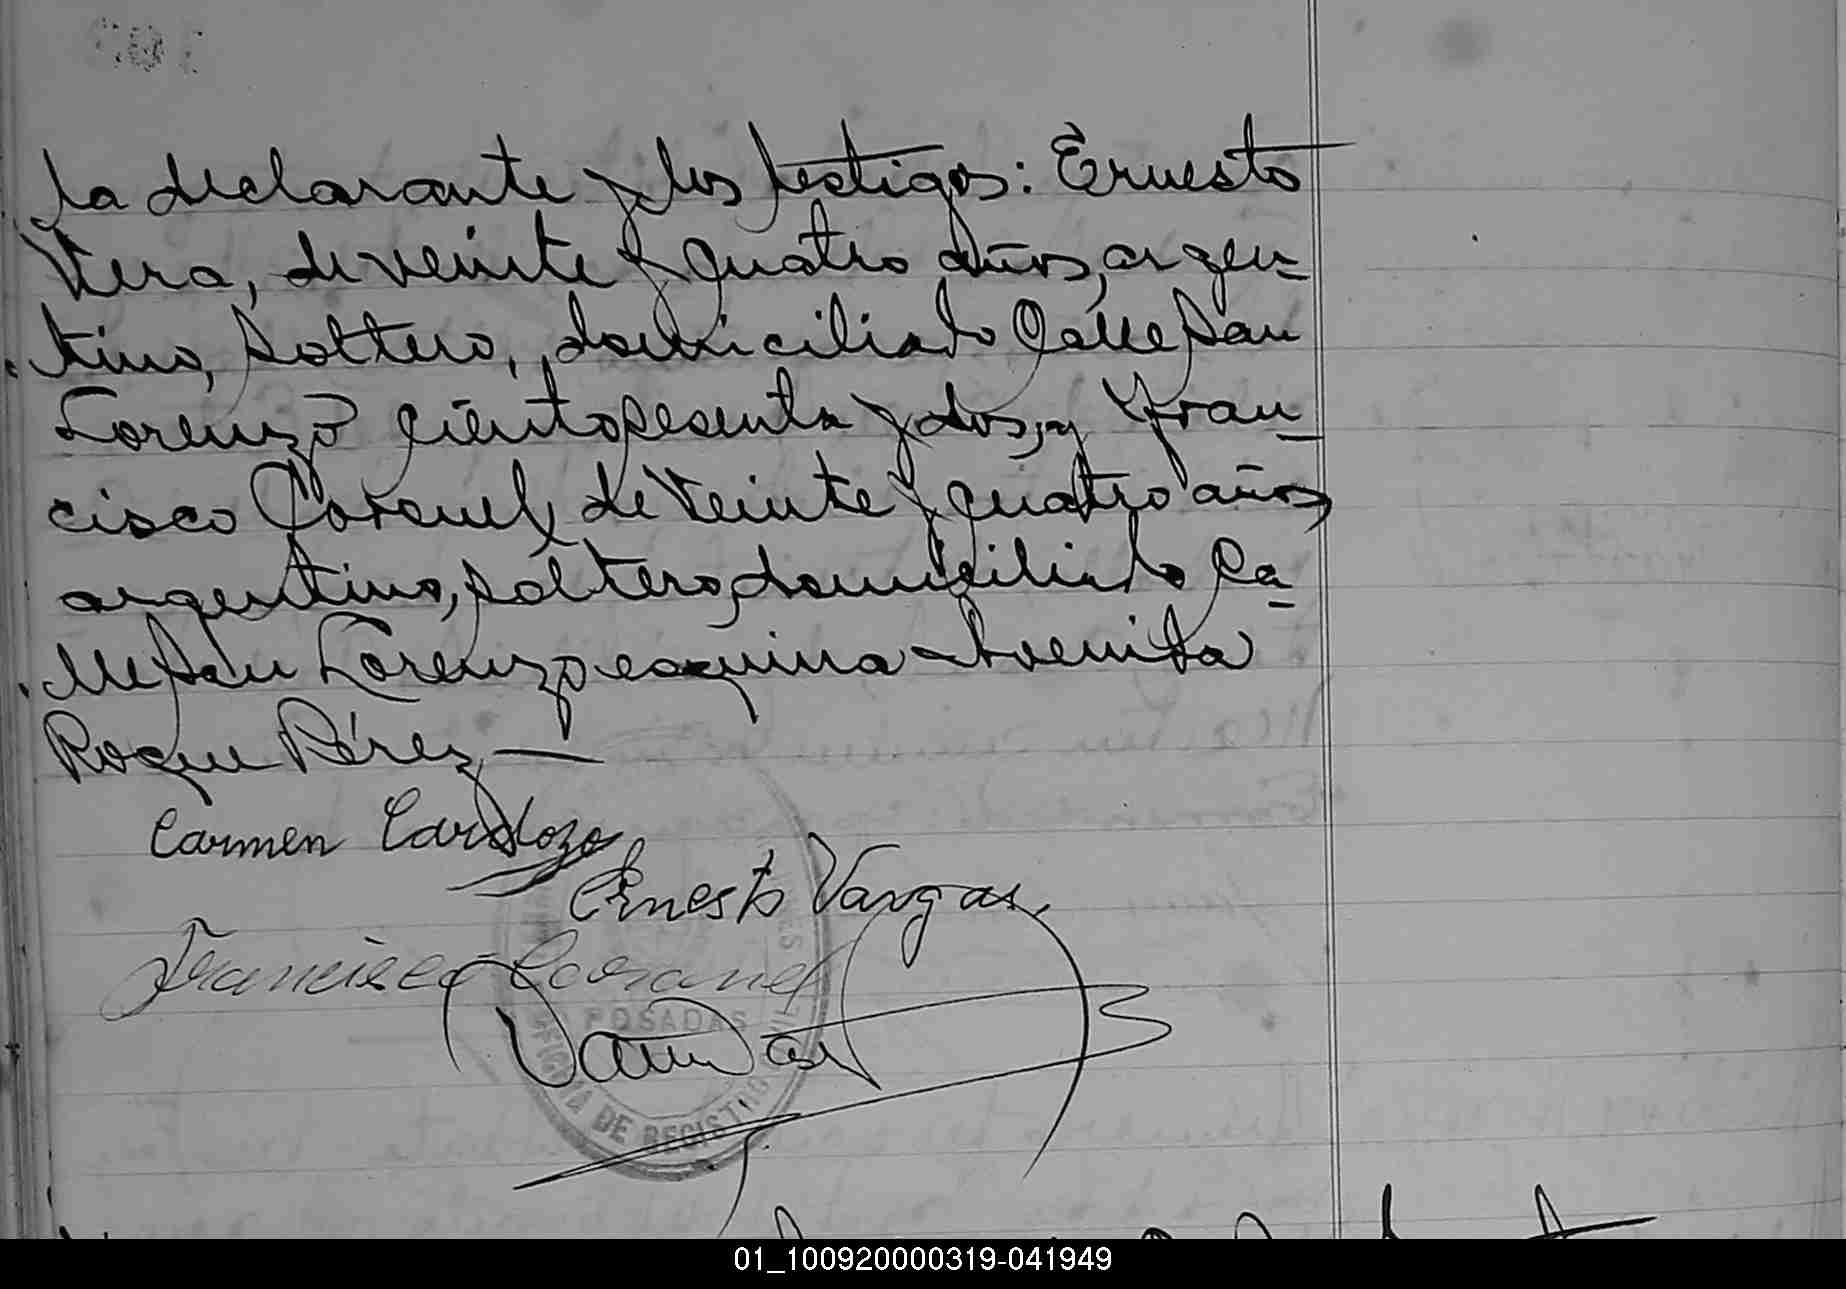 la declarante y los testigos: Ernesto
Vera, de veinte y cuatro años, argen-
tino, soltero, domiciliado Calle San
Lorenzo ciento sesenta y dos, y Fran-
cisco Coronel, de veinte y cuatro años,
argentino, soltero, domiciliado Ca-
lle San Lorenzo esquina Avenida
Roque Pérez
Carmen Cardozo
Ernesto Vargas
Francisco Coronel
POSADAS
OFICINA DE REGISTRO
01_100920000319-041949